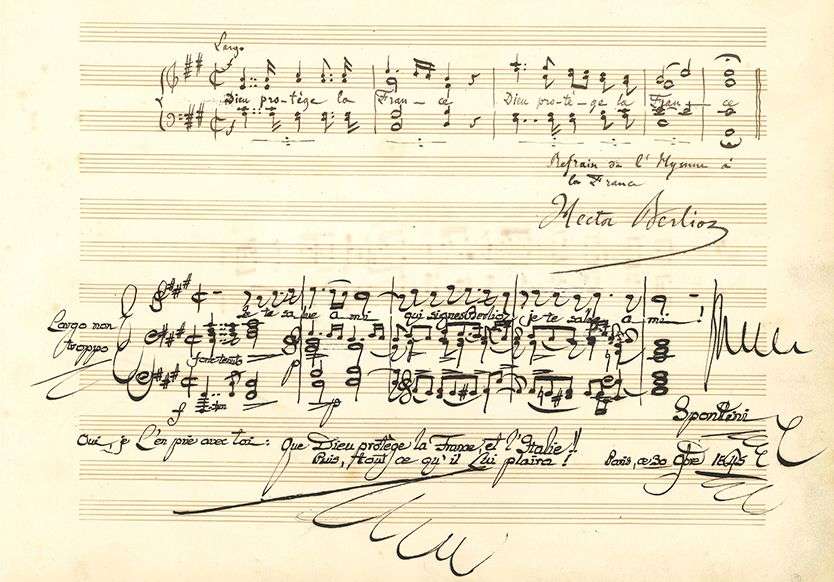 Largo
Dieu pro-tège la Fran-ce Dieu pro-tè-ge la Fran-ce
Refrain de l'Hymne à
la France
Hector Berlioz
Largo non
troppo
Je te salue ami qui signes Berlioz je te salue ami!
f
p
f
p
Spontini
Oui, je l'en prie avec toi: Que Dieu protège la France et l'Italie!!
Puis, tout ce qu'il Lui plaira! Paris, ce 30 1845